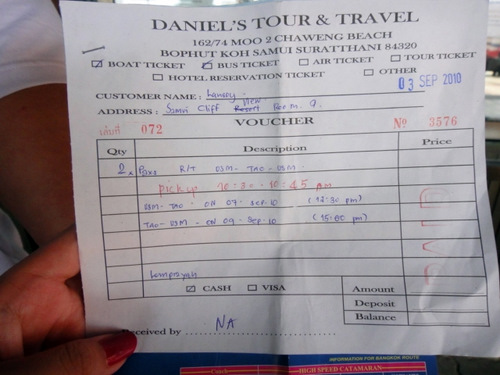 DANIEL'S TOUR & TRAVEL
162/74 MOO 2 CHAWENG BEACH
BOPHUT KOH SAMUI SURATTHANI 84320
BOAT TICKET BUS TICKET AIR TICKET TOUR TICKET
HOTEL RESERVATION TICKET OTHER
03 SEP 2010
CUSTOMER NAME :
ADDRESS : Samui Cliff View Resort Room
VOUCHER
เล่มที่ 072 No 3576
Qty Description Price
2 x Paxs R/T USM - TAO - USM
Pick up 10:30 - 10:45 am
USM - TAO - ON 07 - SEP - 10 (12:30 pm)
TAO - USM - ON 09 - SEP - 10 (15:00 pm)
PAID
Lomprayah
CASH VISA Amount
Deposit
Balance
Received by NA
INFORMATION FOR BANGKOK ROUTE
Coach HIGH SPEED CATAMARAN